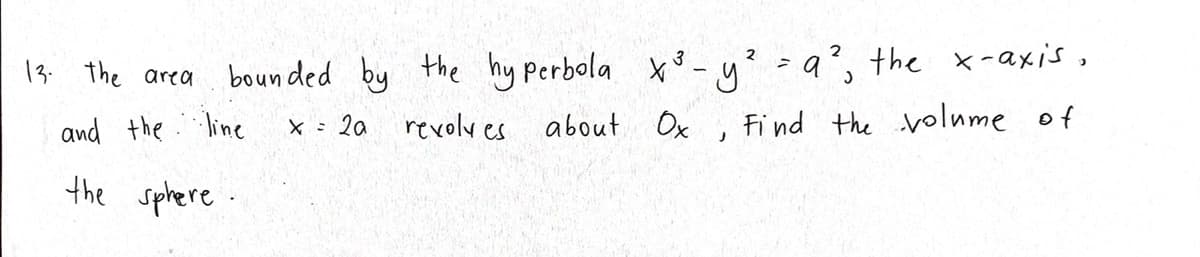 13. the area bounded by the hyperbola x³ - y² = a², the x-axis,
and the line x = 2a revolves about Ox , Find the volume of
the sphere.